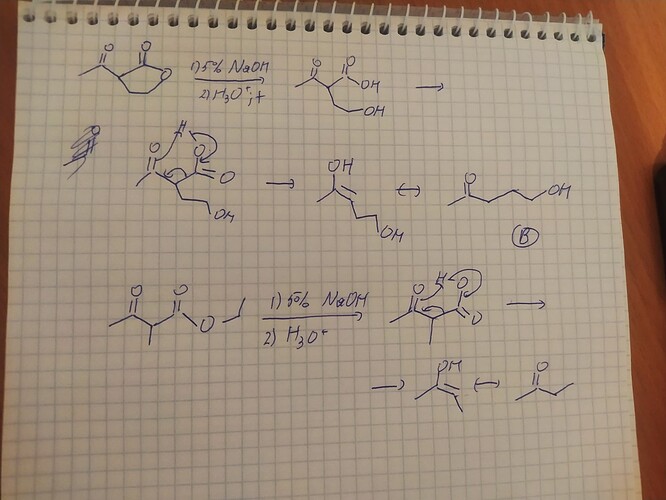 O O O 1) 5% NaOH O O
2) H3O+; t OH
OH
H
O O O OH O OH
OH OH
B
O O O 1) 5% NaOH O H O
2) H3O+ O
OH O